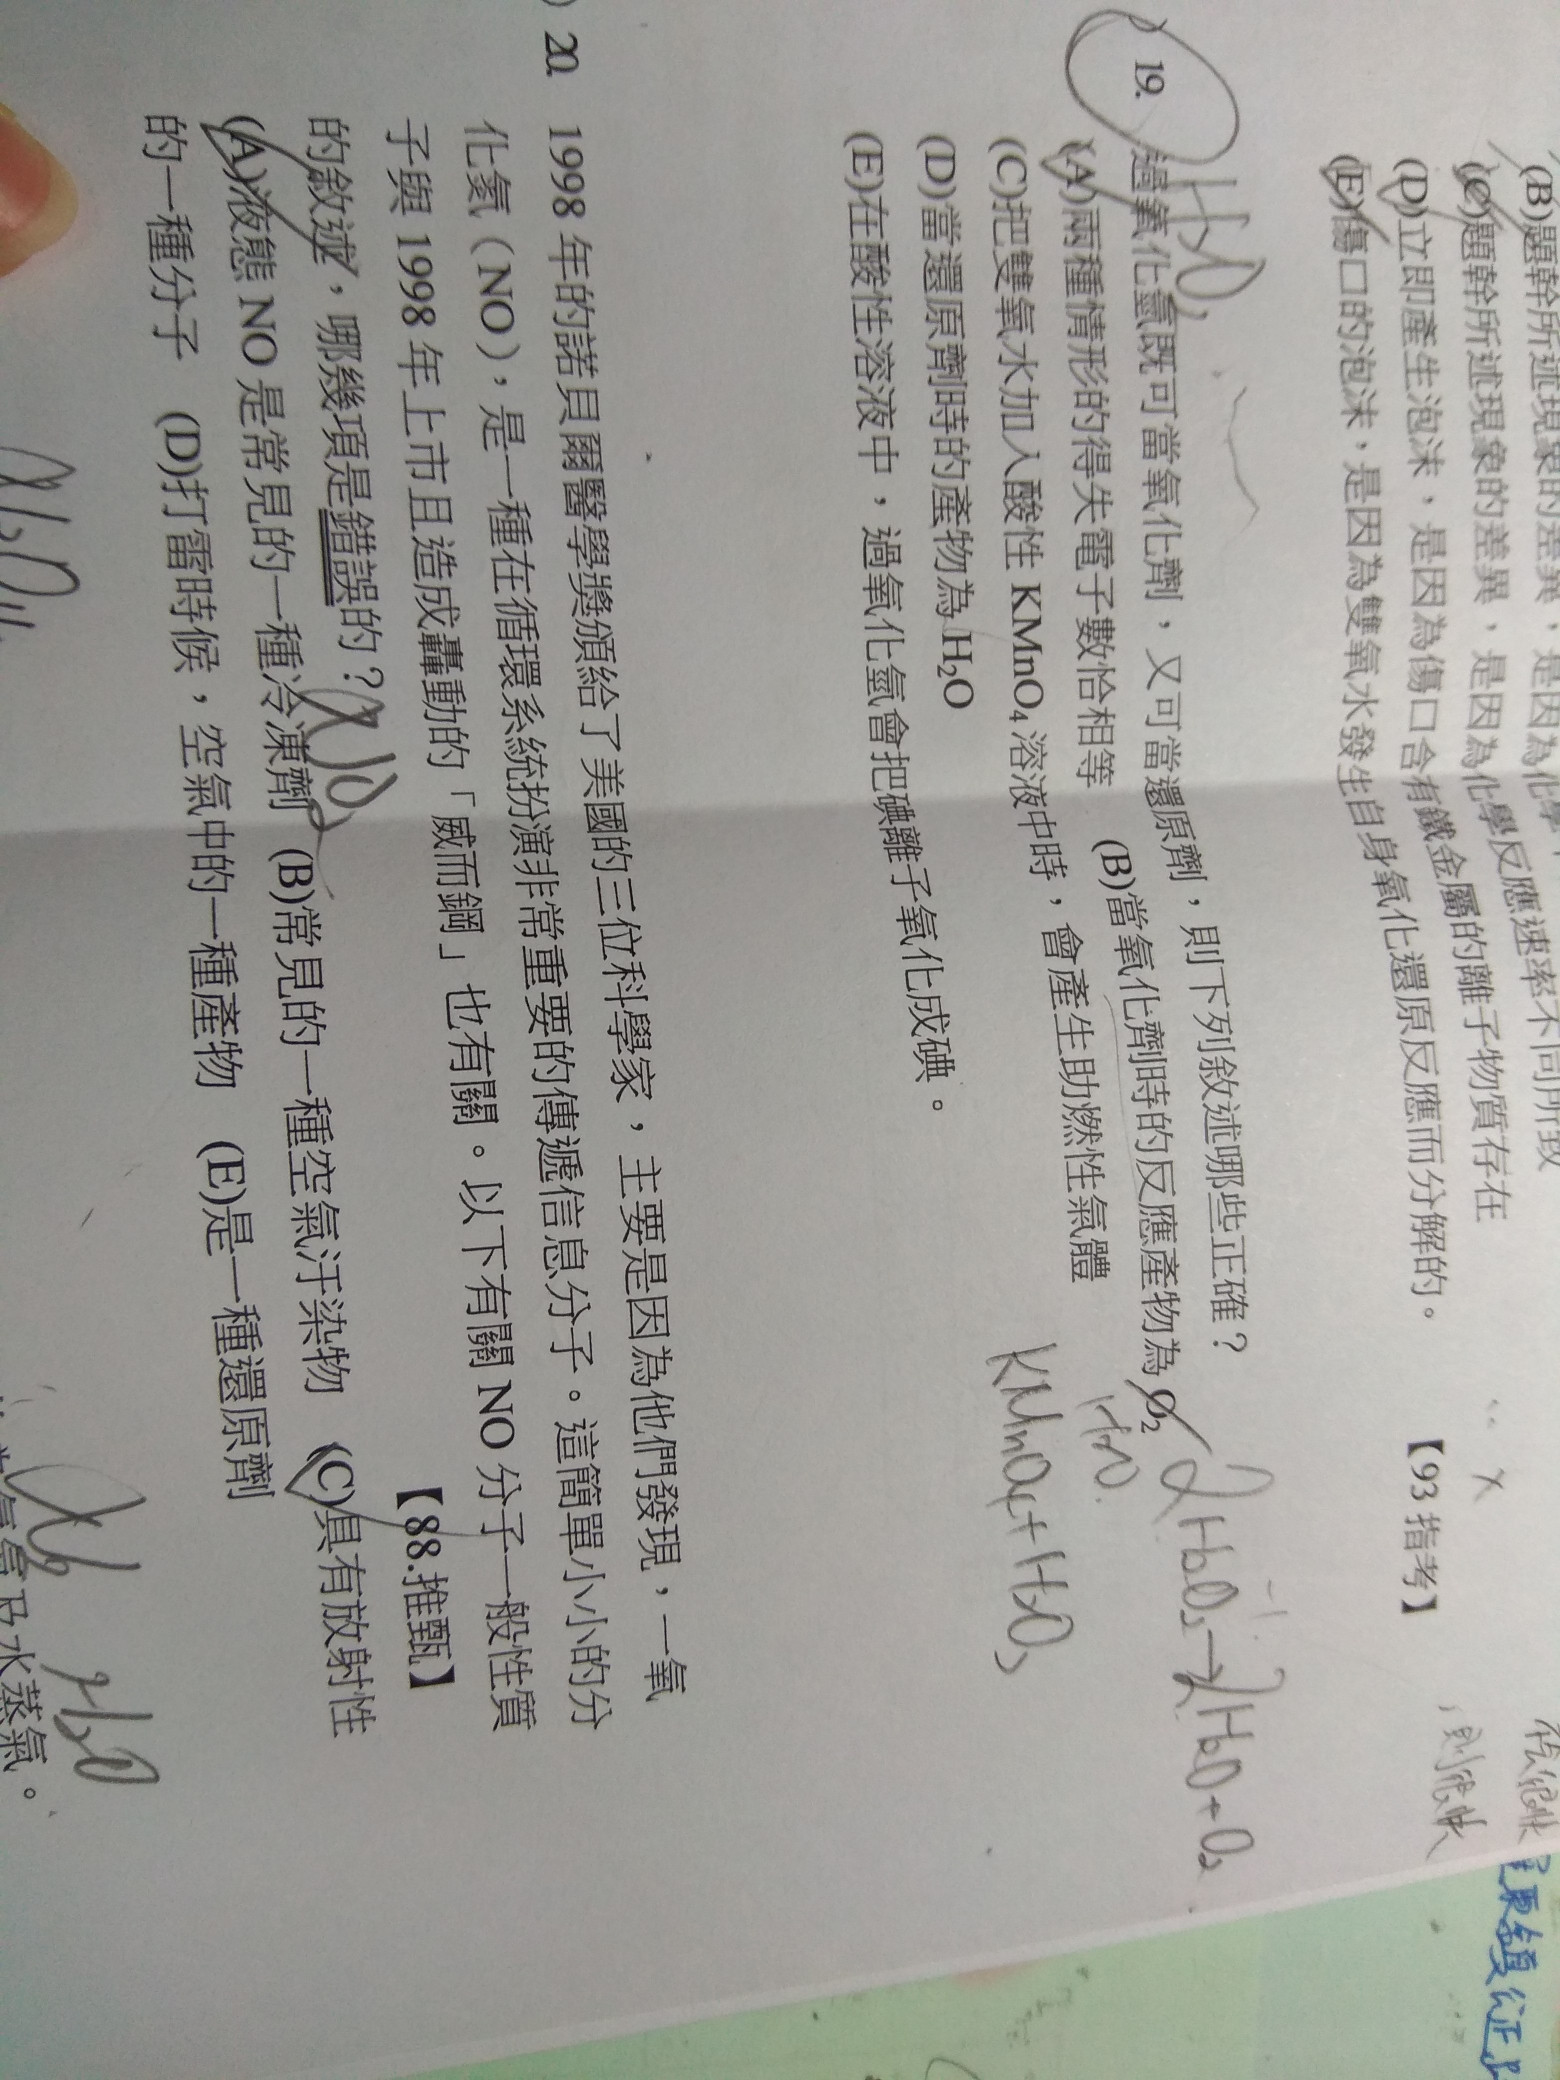 (B)題幹所述現象的差異,是因為化學
(C)題幹所述現象的差異,是因為化學反應速率不同所致
(D)立即產生泡沫,是因為傷口含有鐵金屬的離子物質存在
(E)傷口的泡沫,是因為雙氧水發生自身氧化還原反應而分解的。
【93 指考】
X
則很快
H₂O₂
19. 過氧化氫既可當氧化劑,又可當還原劑,則下列敘述哪些正確?
(A)兩種情形的得失電子數恰相等 (B)當氧化劑時的反應產物為 O₂
H₂O
2H₂O₂→2H₂O+O₂
(C)把雙氧水加入酸性 KMnO₄ 溶液中時,會產生助燃性氣體
KMnO₄+H₂O₂
(D)當還原劑時的產物為 H₂O
(E)在酸性溶液中,過氧化氫會把碘離子氧化成碘。
) 20. 1998 年的諾貝爾醫學獎頒給了美國的三位科學家,主要是因為他們發現,一氧
化氮(NO),是一種在循環系統扮演非常重要的傳遞信息分子。這簡單小小的分
子與 1998 年上市且造成轟動的「威而鋼」也有關。以下有關 NO 分子一般性質
的敘述,哪幾項是錯誤的?
【88.推甄】
(A)液態 NO 是常見的一種冷凍劑 (B)常見的一種空氣汙染物 (C)具有放射性
的一種分子 (D)打雷時候,空氣中的一種產物 (E)是一種還原劑
及水蒸氣。